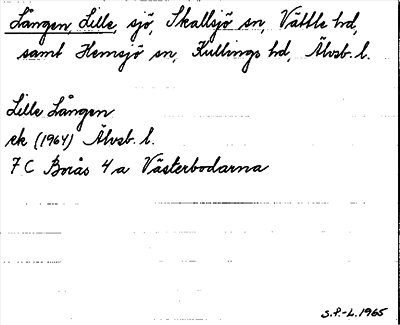 Lången, Lille, sjö, Skallsjö sn, Vättle hd,
samt Hemsjö sn, Kullings hd, Älvsb. l.
Lille Lången
ek (1964) Älvsb. l.
7 C Borås 4 a Västerbodarna
S.P.-L. 1965